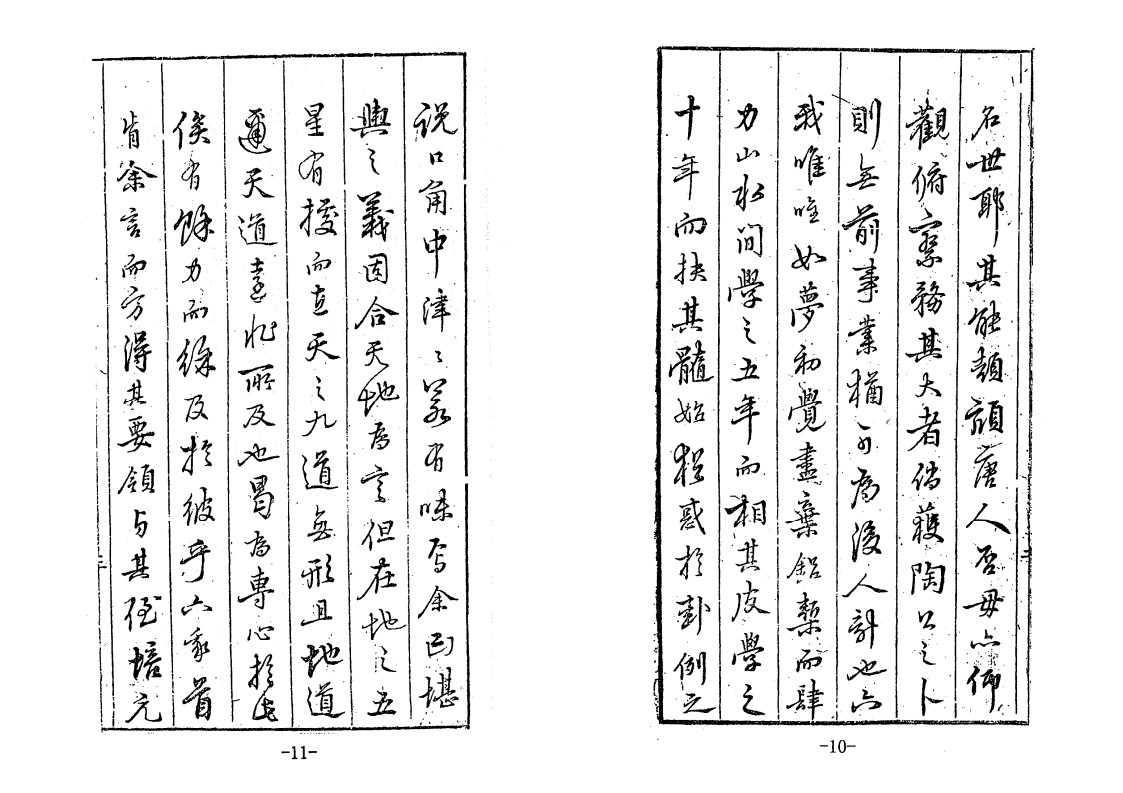 名世耶其能頡頏唐人否毋亦仰
觀俯察務其大者倘獲陶公之卜
則無前事業猶可為後人計也六
我唯唯如夢初覺盡棄鉛槧而肆
力山水間學之五年而相其皮學之
十年而抉其髓始猶惑於卦例之
-10-
説口角中津〻若有味焉余曰堪
輿之義固合天地為言但在地之五
星有據而在天之九道無形且地道
邇天道遠非所及也曷為專心於此
俟有餘力而徐及於彼乎六我首
肯余言而方得其要領与其侄培元
-11-